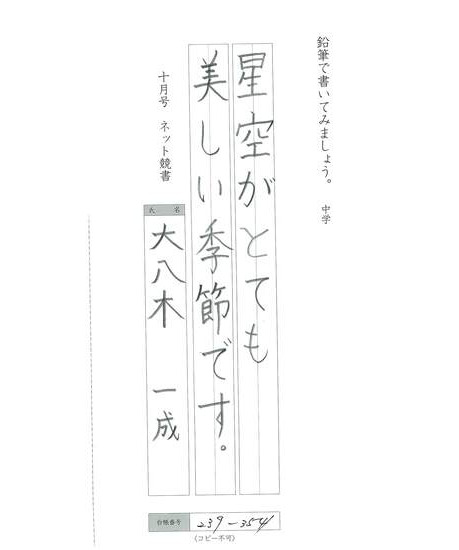 鉛筆で書いてみましょう。 中学
星空がとても
美しい季節です。
十月号 ネット競書
氏名
大八木 一成
台帳番号 239-354
(コピー不可)